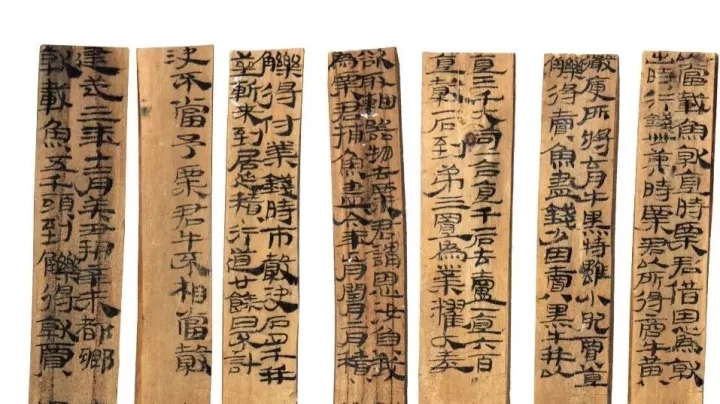 當載魚就直時粟君借恩為就
時行錢卌萬時粟君以所得商牛黃
嚴庚所將育牛黑特雖小肥賈直
觻得賣魚盡錢少因賣黑牛并以
直三千大笥一合直千石去盧一直六百
直穀石到第三置為業糴大麥
欲取軸器物去粟君謂恩汝負我
為粟君捕魚盡今年正月閏月二月積
觻得付業錢時市穀決石四千并
莖斬來到居延積行道廿餘日不計
決不當予粟君牛不相當穀
建武三年十二月癸丑朔辛未都鄉
就載魚五千頭到觻得就賈